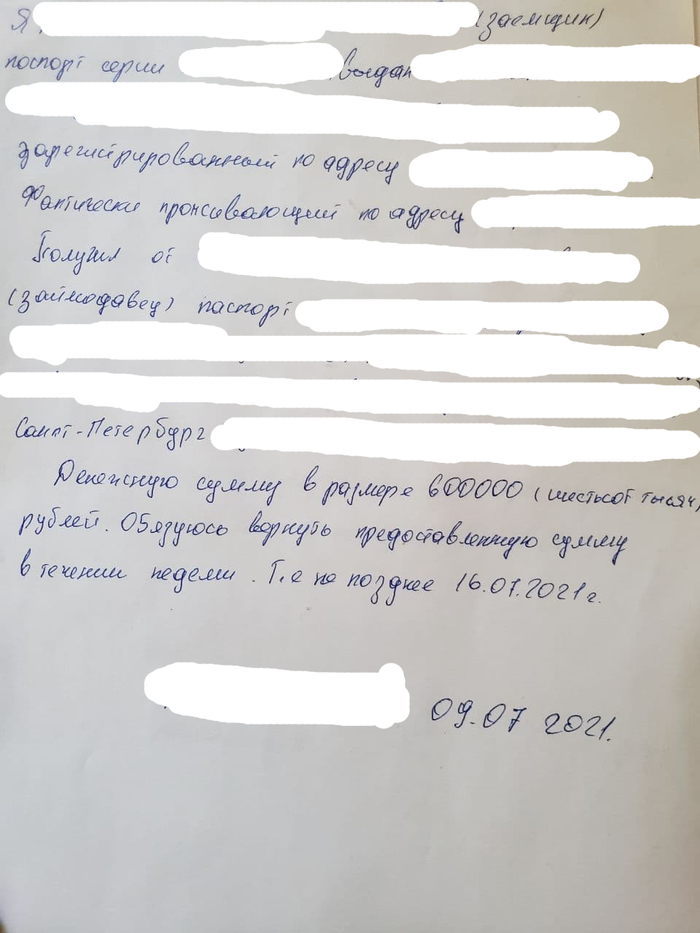 Я,
(заемщик)
поспорт серии выдан
зарегистрированный по адресу
Фактически проживающий по адресу
Получил от
(займодавец) паспорт
Санкт-Петербург
Денежную сумму в размере 600000 (шестьсот тысяч)
рублей. Обязуюсь вернуть предоставленную сумму
в течении недели. Т.е не позднее 16.07.2021г.
09.07 2021.